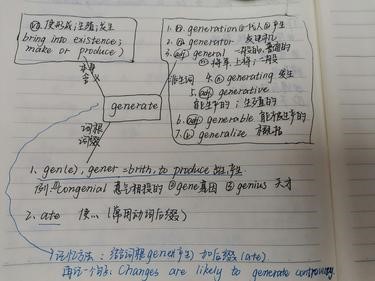 vt. 使形成;生殖;发生
(bring into existence;
make or produce)
本单
含义
generate
派生词
1. n. generation ①一代人 ② 产生
2. n. generator 发电机
3. adj general 一般的,普遍的
n 将军,上将;一般
4. n generating 发生
5. adj generative
能生产的;生殖的
6. adj generable 能被生产的
7. v. generalize 概括
词根
词缀
1. gen(e), gener = brith, to produce 出生,产生
例:①congenial 意气相投的 ②gene基因 ③genius 天才
2. ate 使… (常用动词后缀)
记忆方法:结合词根gener(产生) 加后缀(ate)
再记一个句子: Changes are likely to generate controversy